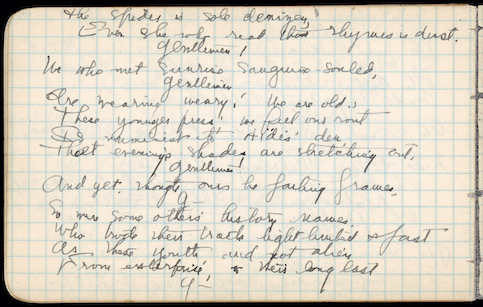 The spider is sole denizen;
Even she who read those rhymes is dust,
Gentlemen!
We who met sunrise sanguine-souled,
Gentlemen
Are wearing weary. We are old;
These younger press; we feel our rout
Is imminent to Aïdes' den,
That evening shades are stretching out,
Gentlemen!
And yet, though ours be failing frames,
G—
So were some others' history names,
Who trode their track light-limbed & fast
As these youth, and not alien
From enterprise, to their long last
G—